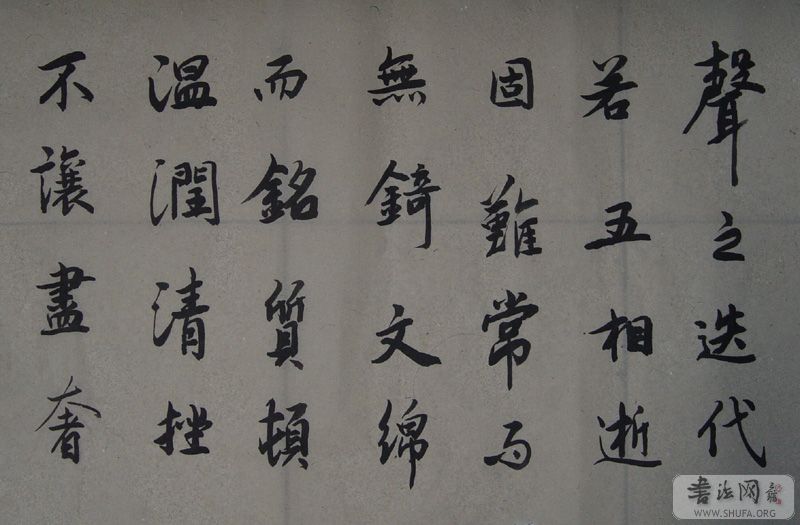 聲之迭代
若五相逝
固難常
無錡文綿
而銘質頓
温潤清挫
不讓盡奢
書法网
WWW.SHUFA.ORG